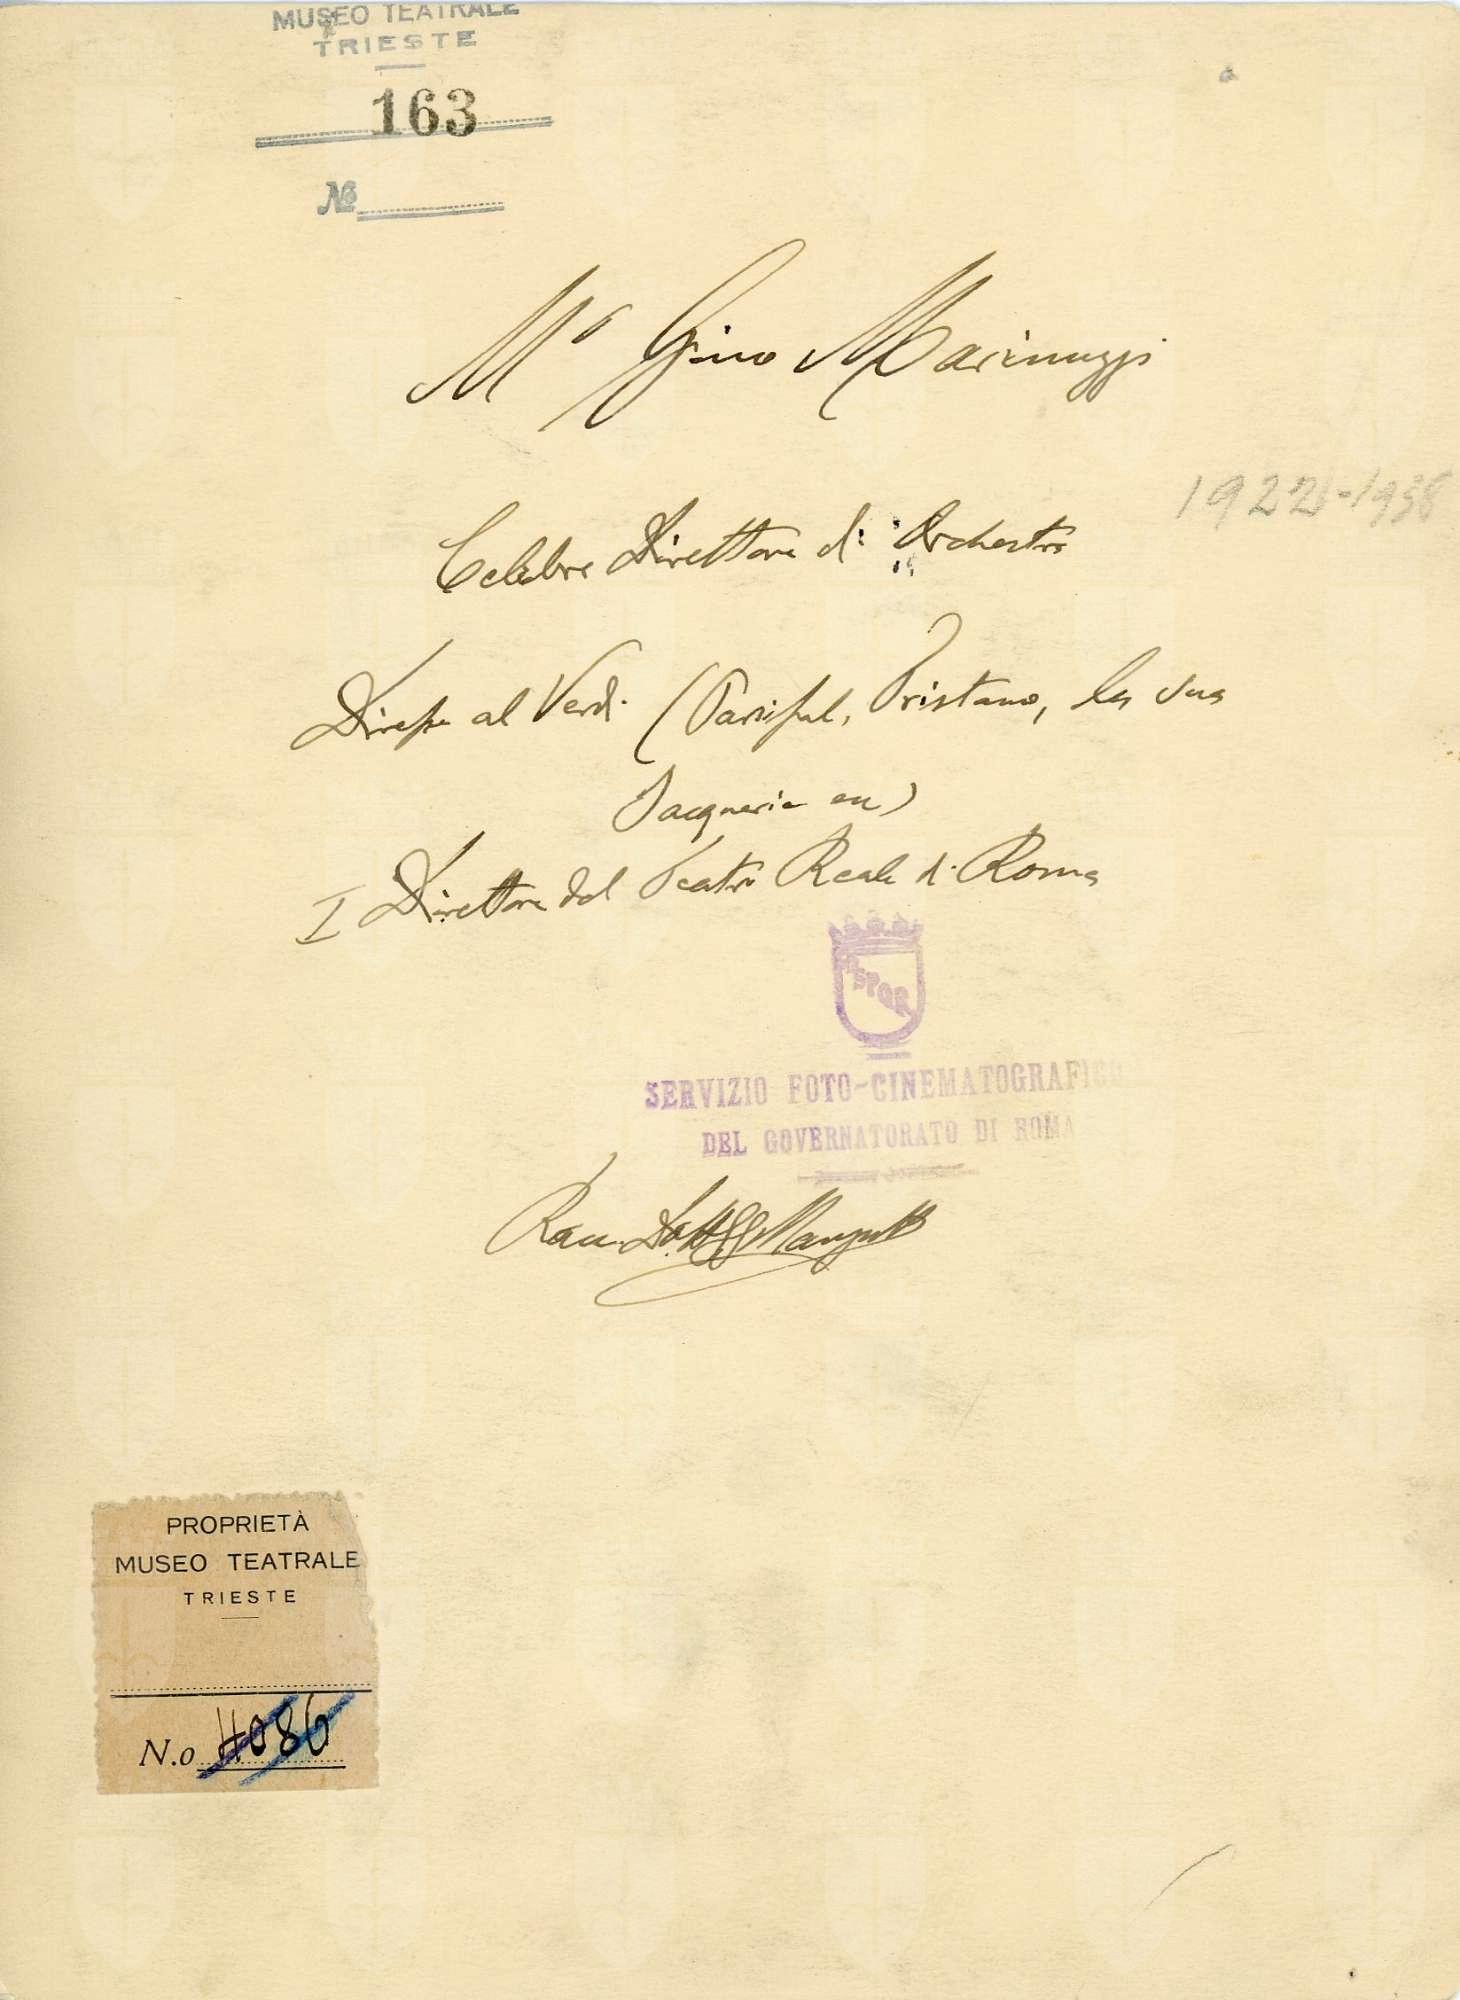 MUSEO TEATRALE
TRIESTE
163
No
Mo Gino Marinuzzi
1922-1938
Celebre Direttore di Orchestra
Diresse al Verdi (Parsifal, Tristano, la sua
Jacquerie ecc)
I Direttore del Teatro Reale di Roma
SPQR
SERVIZIO FOTO-CINEMATOGRAFICO
DEL GOVERNATORATO DI ROMA
Racc. Dott.
PROPRIETÀ
MUSEO TEATRALE
TRIESTE
N.o 4086